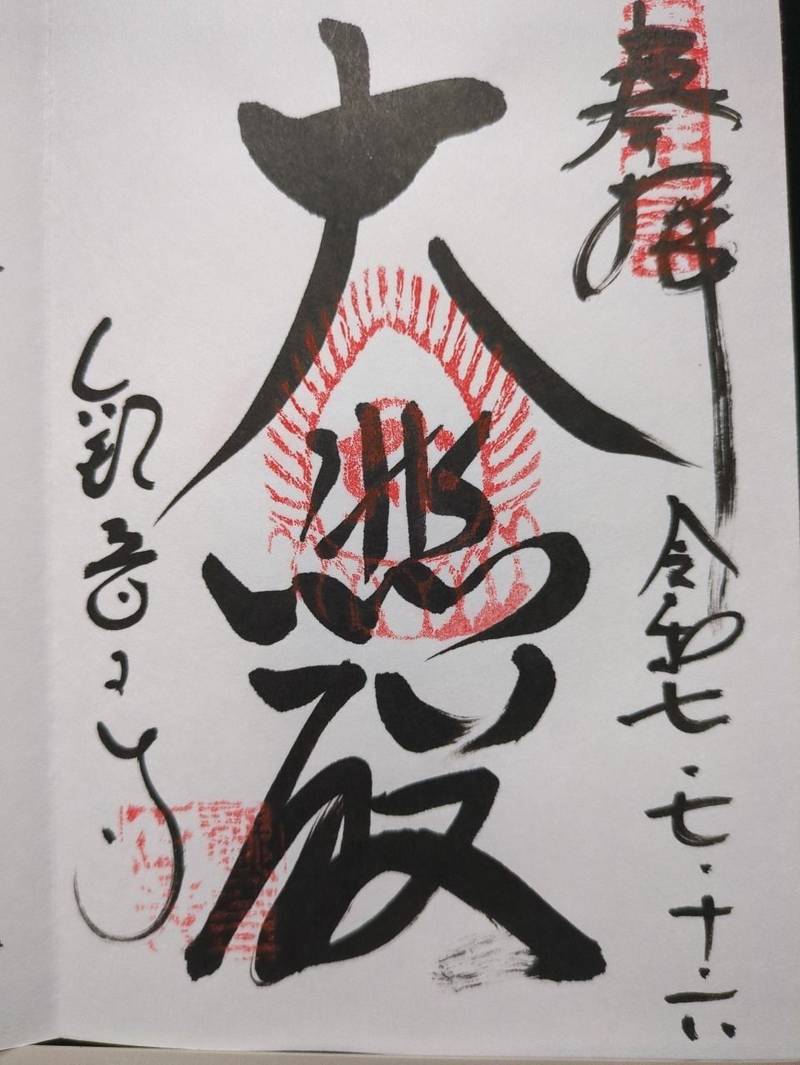 奉拝
令和七・七・十六
大悲殿
観音正寺